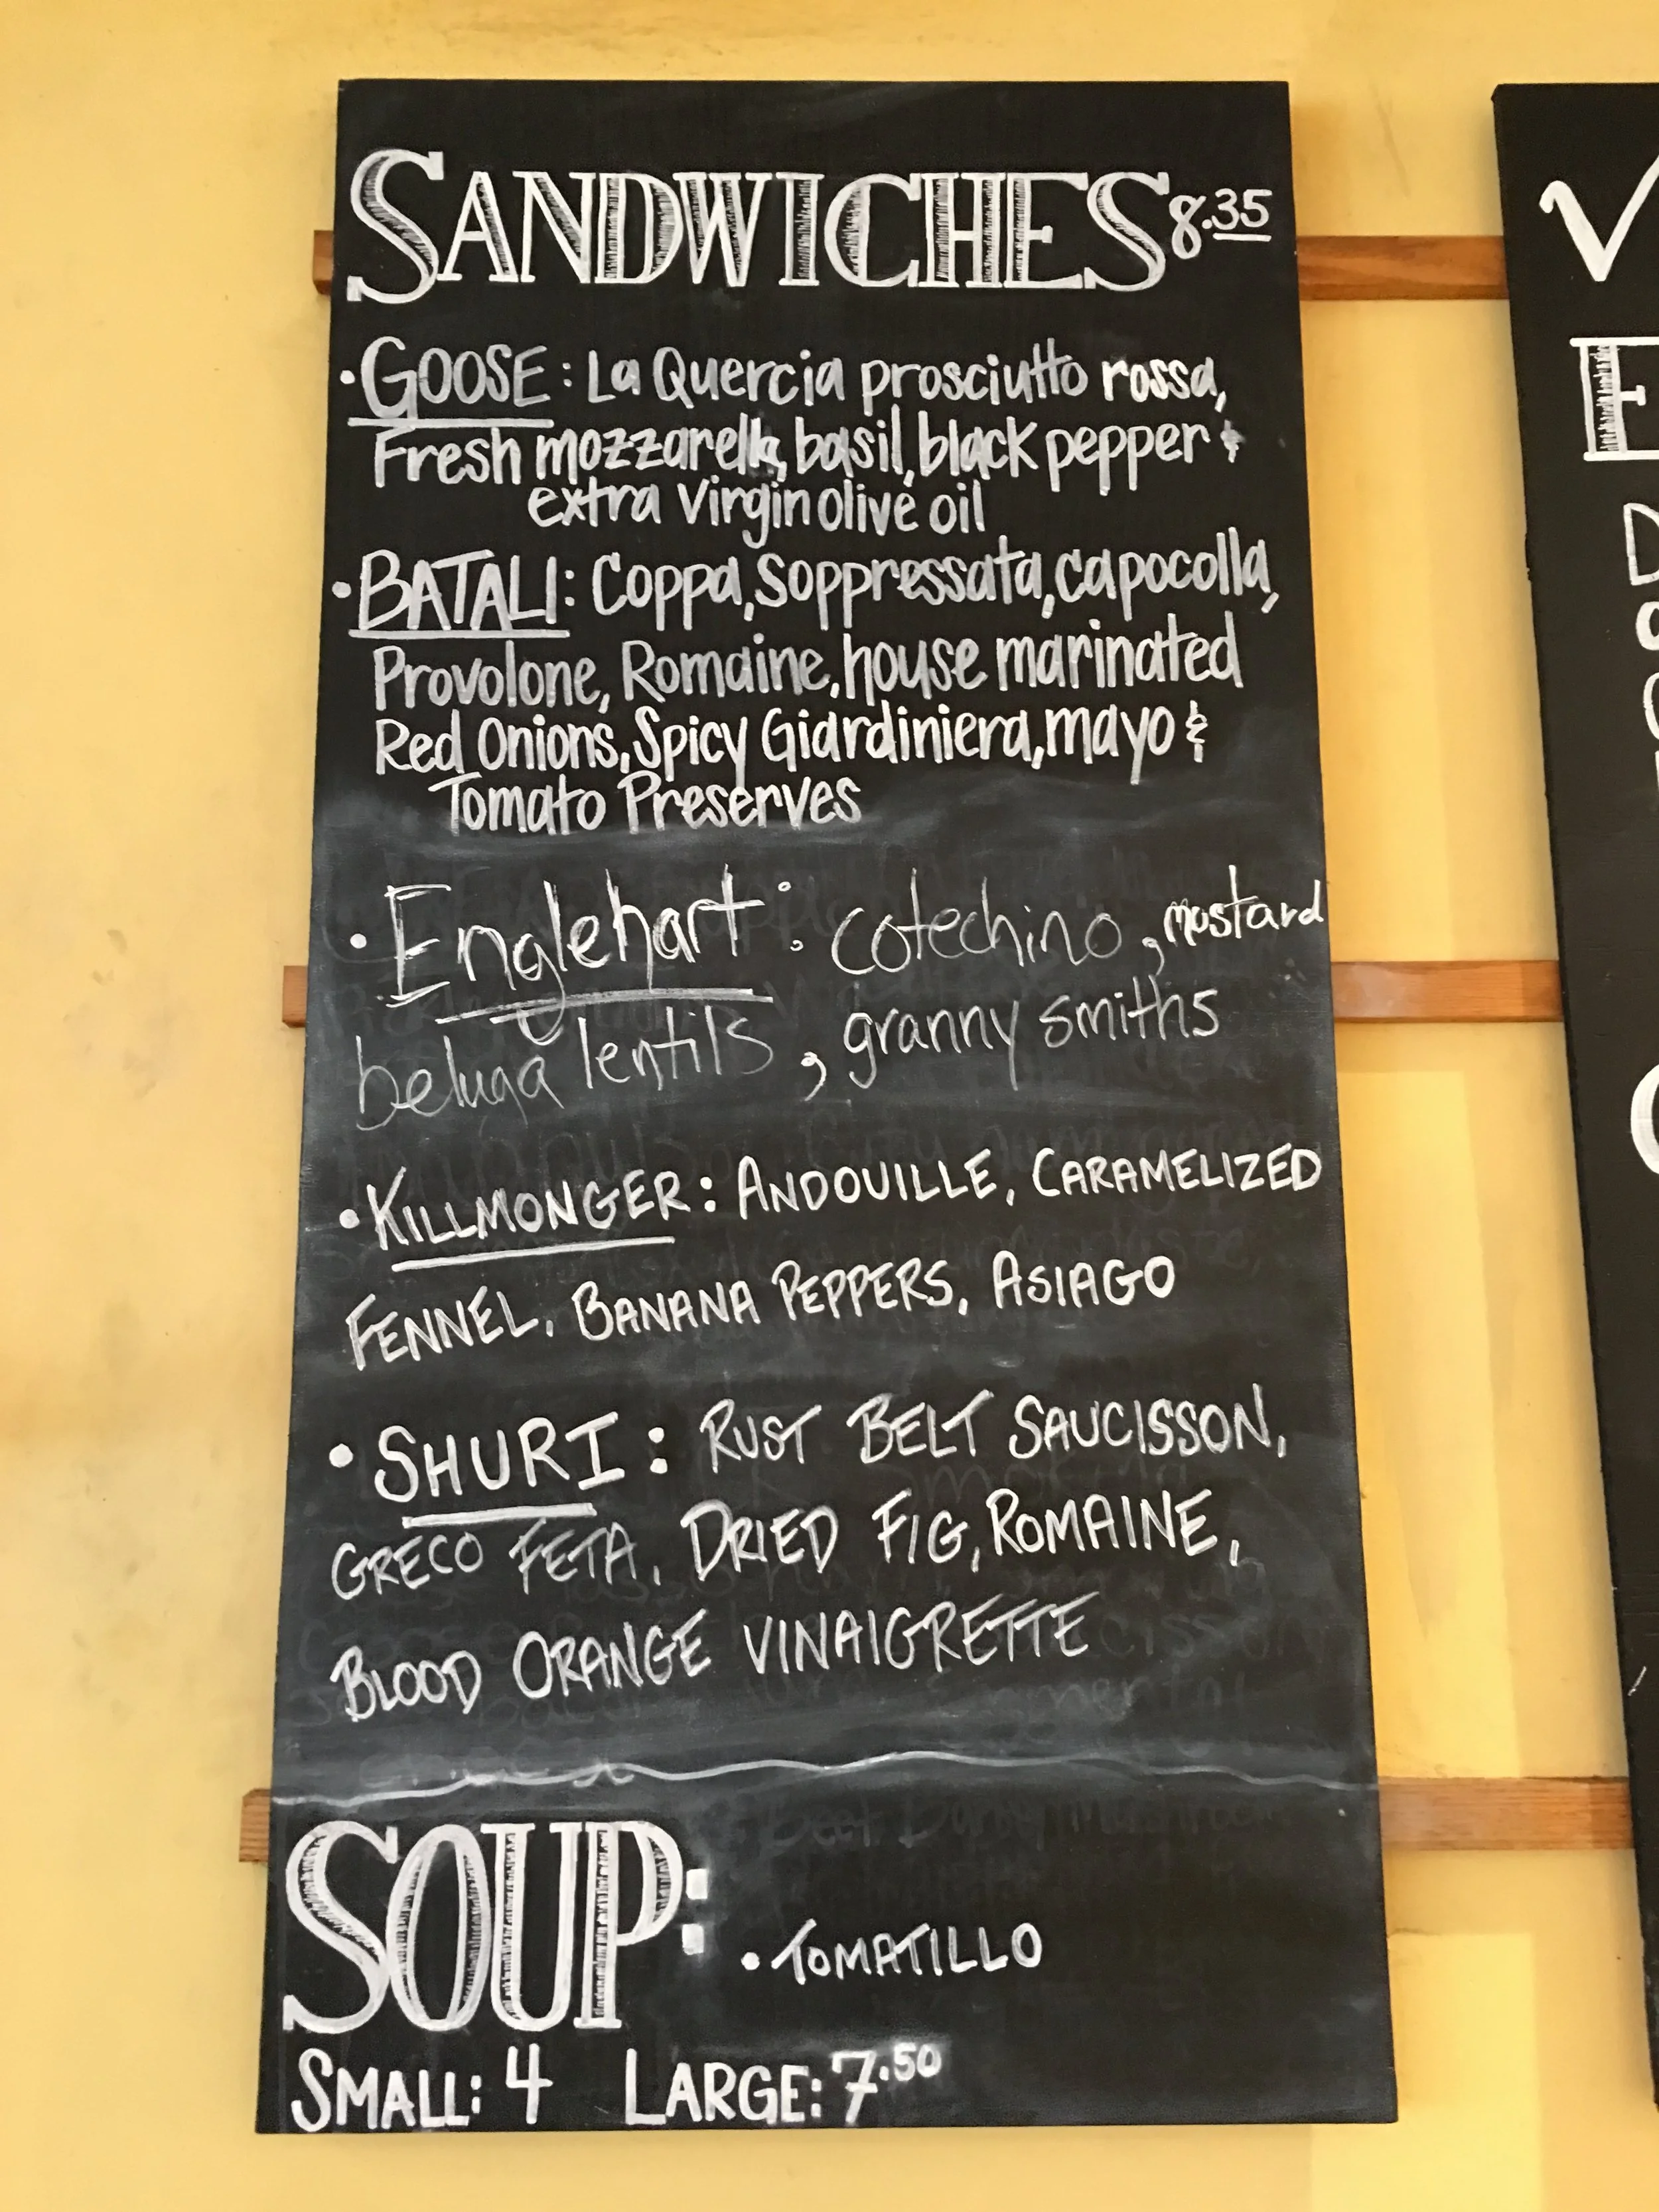 SANDWICHES 8.35
• GOOSE: La Quercia prosciutto rossa,
Fresh mozzarella, basil, black pepper &
extra virgin olive oil
• BATALI: Coppa, Soppressata, capocolla,
Provolone, Romaine, house marinated
Red Onions, Spicy Giardiniera, mayo &
Tomato Preserves
• Englehart: cotechino, mustard
beluga lentils, granny smiths
• KILLMONGER: ANDOUILLE, CARAMELIZED
FENNEL, BANANA PEPPERS, ASIAGO
• SHURI: RUST BELT SAUCISSON,
GRECO FETA, DRIED FIG, ROMAINE,
BLOOD ORANGE VINAIGRETTE
SOUP: • TOMATILLO
SMALL: 4 LARGE: 7.50